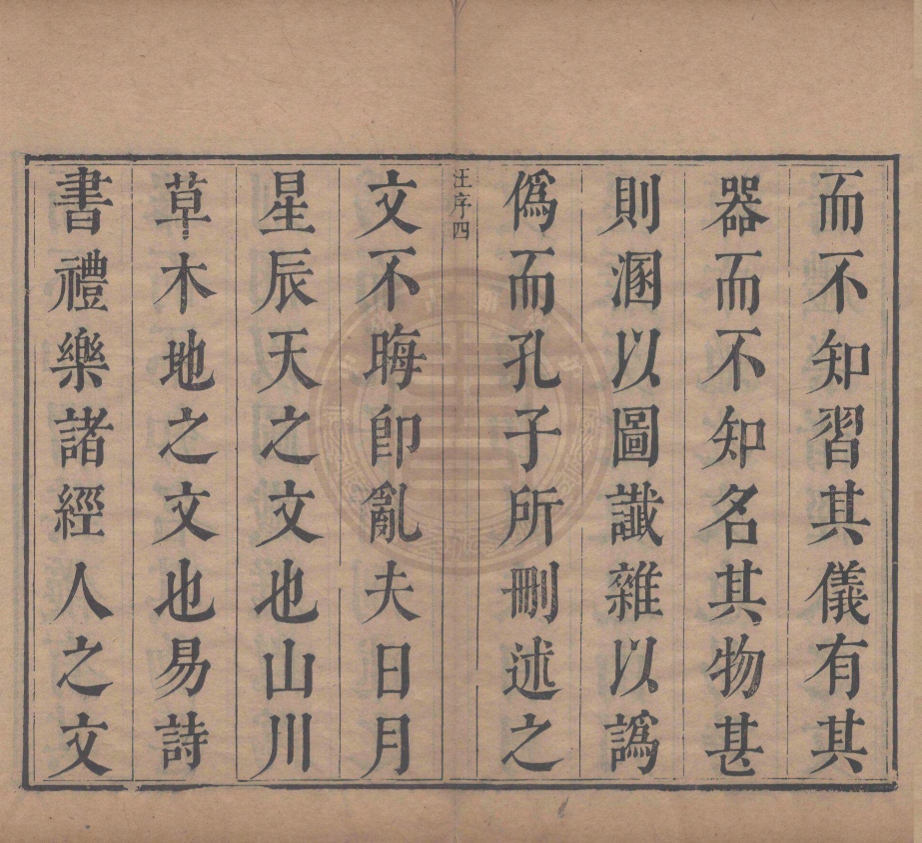 而不知習其儀有其
器而不知名其物甚
則溷以圖讖雜以譌
僞而孔子所刪述之
汪序四
文不晦卽亂夫日月
星辰天之文也山川
草木地之文也易詩
書禮樂諸經人之文